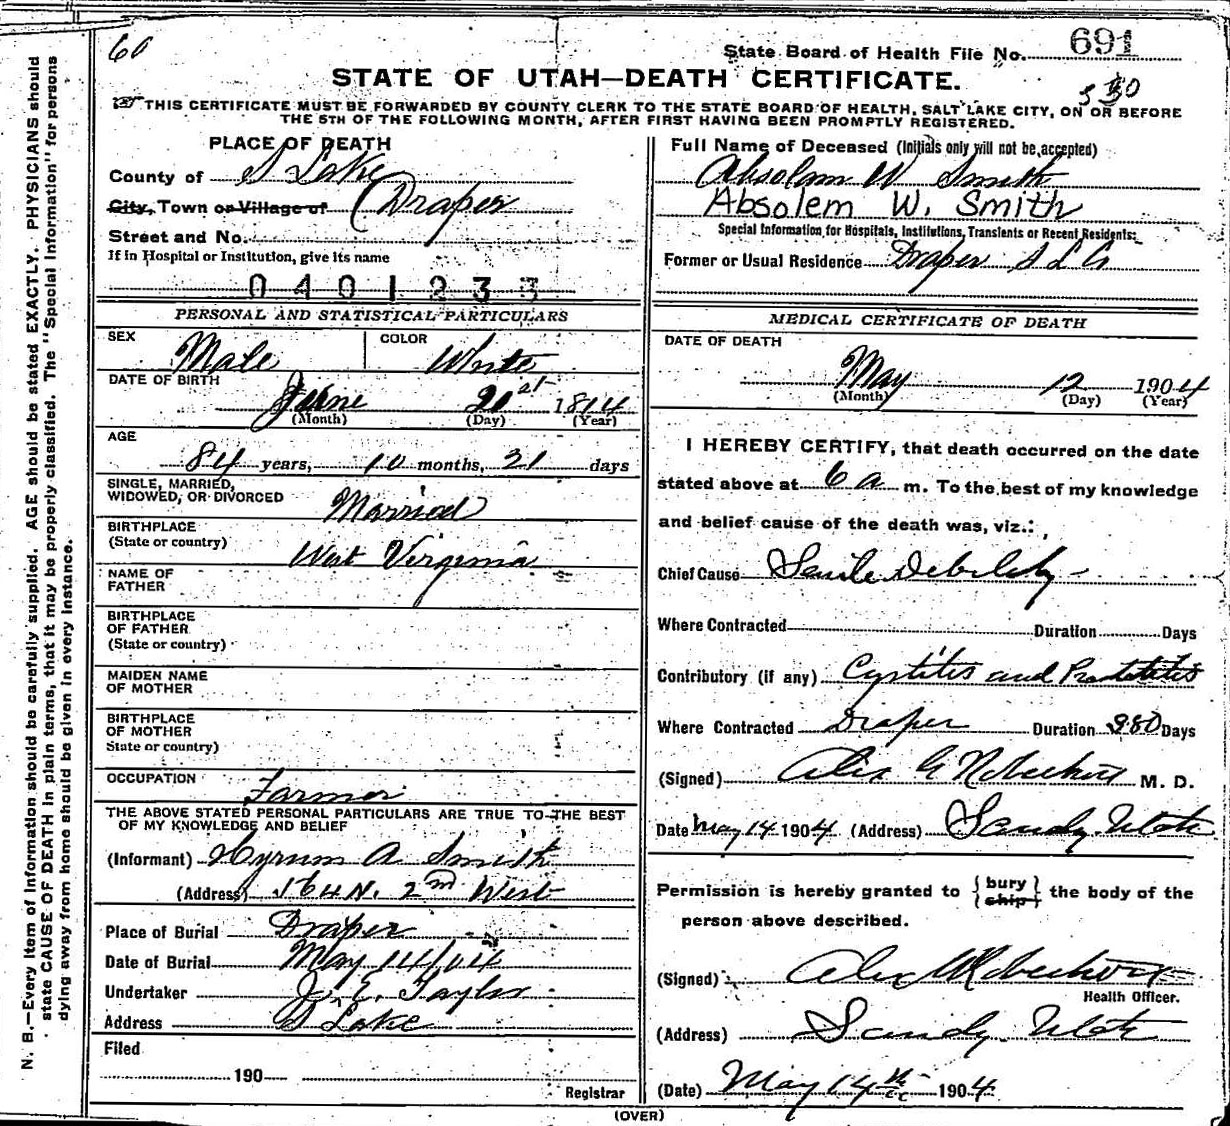 60
State Board of Health File No. 691
STATE OF UTAH—DEATH CERTIFICATE.
THIS CERTIFICATE MUST BE FORWARDED BY COUNTY CLERK TO THE STATE BOARD OF HEALTH, SALT LAKE CITY, ON OR BEFORE
THE 5TH OF THE FOLLOWING MONTH, AFTER FIRST HAVING BEEN PROMPTLY REGISTERED.
PLACE OF DEATH
County of S Lake
City, Town or Village of Draper
Street and No.
If in Hospital or Institution, give its name
0401233
PERSONAL AND STATISTICAL PARTICULARS
SEX Male COLOR White
DATE OF BIRTH
June 21st 1814
(Month) (Day) (Year)
AGE
84 years, 10 months, 21 days
SINGLE, MARRIED,
WIDOWED, OR DIVORCED Married
BIRTHPLACE
(State or country) West Virginia
NAME OF
FATHER
BIRTHPLACE
OF FATHER
(State or country)
MAIDEN NAME
OF MOTHER
BIRTHPLACE
OF MOTHER
State or country)
OCCUPATION Farmer
THE ABOVE STATED PERSONAL PARTICULARS ARE TRUE TO THE BEST
OF MY KNOWLEDGE AND BELIEF
(Informant) Hyrum A Smith
(Address) 164 N. 2nd West
Place of Burial Draper
Date of Burial May 14/04
Undertaker J. E. Taylor
Address S Lake
Filed
190
Registrar
Full Name of Deceased (Initials only will not be accepted)
Absolam W Smith
Absolem W. Smith
Special Information for Hospitals, Institutions, Transients or Recent Residents:
Former or Usual Residence Draper S L Co
MEDICAL CERTIFICATE OF DEATH
DATE OF DEATH
May 12 1904
(Month) (Day) (Year)
I HEREBY CERTIFY, that death occurred on the date
stated above at 6 a m. To the best of my knowledge
and belief cause of the death was, viz.:
Chief Cause Senile Debility
Where Contracted Duration Days
Contributory (if any) Cystitis and Prostatitis
Where Contracted Draper Duration 380 Days
(Signed) Alex G M. D.
Date May 14 1904 (Address) Sandy Utah
Permission is hereby granted to { bury ship } the body of the
person above described.
(Signed) Alex
Health Officer.
(Address) Sandy Utah
(Date) May 14th 1904
(OVER)
N. B.—Every item of information should be carefully supplied. AGE should be stated EXACTLY. PHYSICIANS should
state CAUSE OF DEATH in plain terms, that it may be properly classified. The "Special Information" for persons
dying away from home should be given in every instance.